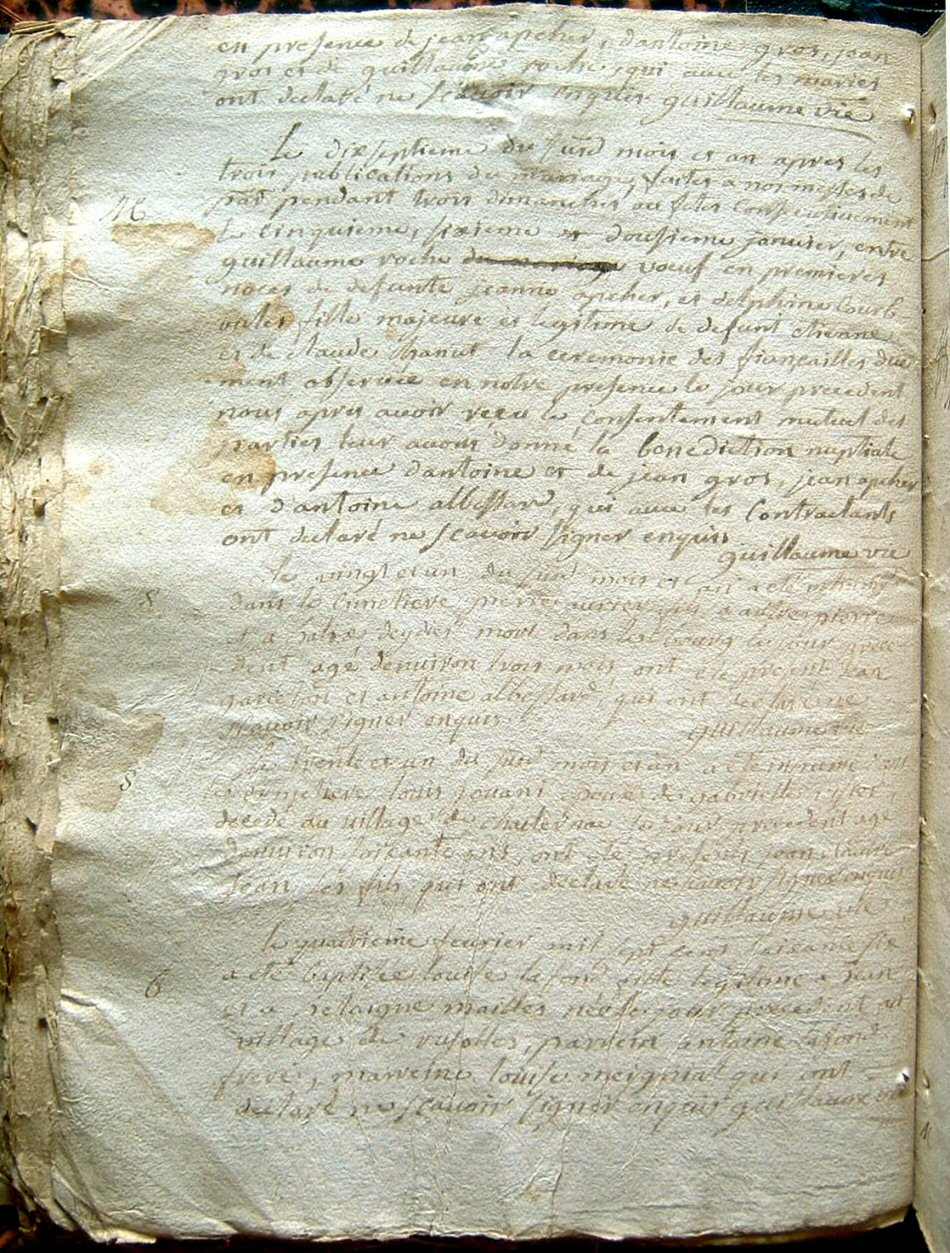 en presence de jean apcher, dantoine gros, jean
gros et de guillaume roche, qui avec les maries
ont declaré ne scavoir enquis guillaume vie
Le dixseptieme du susd mois et an apres les
trois publications du mariage, faites a nos messes de
par pendant trois dimanches ou fetes consecutivement
M
le cinquieme, sixieme et dousieme janvier, entre
guillaume roche voeuf en premieres
noces de defunte jeanne apcher, et delphine courb
oules fille majeure et legitime de defunt etienne
et de claude chanut la ceremonie des fiançailles due
ment observée en notre presence le jour precedent
nous apres avoir reçu le consentement mutuel des
parties leur avons donné la benediction nuptiale
en presence dantoine et de jean gros, jean apcher
et d'antoine albessard, qui avec les contractants
ont declaré ne scavoir signer enquis
guillaume vie
le vingt et un du susd mois et an a eté inhumé
S
dans le cimetiere pierre
et a mort dans le bourg le jour prece
dent agé denviron trois mois ont eté present jean
et antoine albessard, qui ont declaré ne
scavoir signer enquis
guillaume vie
le trente et un du susd mois et an a eté inhumé
S
le cimetiere louis jouant epoux de gabrielle
decedé au village de le jour precedent agé
denviron soixante ans, ont eté presents jean
jean ses fils qui ont declaré ne scavoir signer enquis
guillaume vie
le quatrieme fevrier mil sept cens soixante
B
a eté baptisée louise lafond fille legitime a jean
et a mailles née le jour precedent au
village de parrein antoine lafond
frere, marreine louise meigniat qui ont
declaré ne scavoir signer enquis guillaume vie